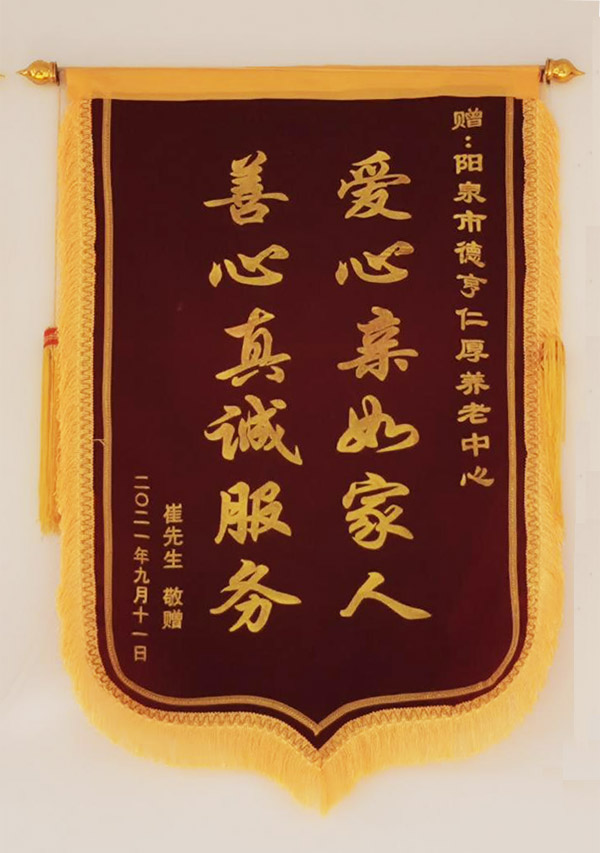 赠：阳泉市德亨仁厚养老中心
爱心亲如家人
善心真诚服务
崔先生 敬赠
二〇二一年九月十一日